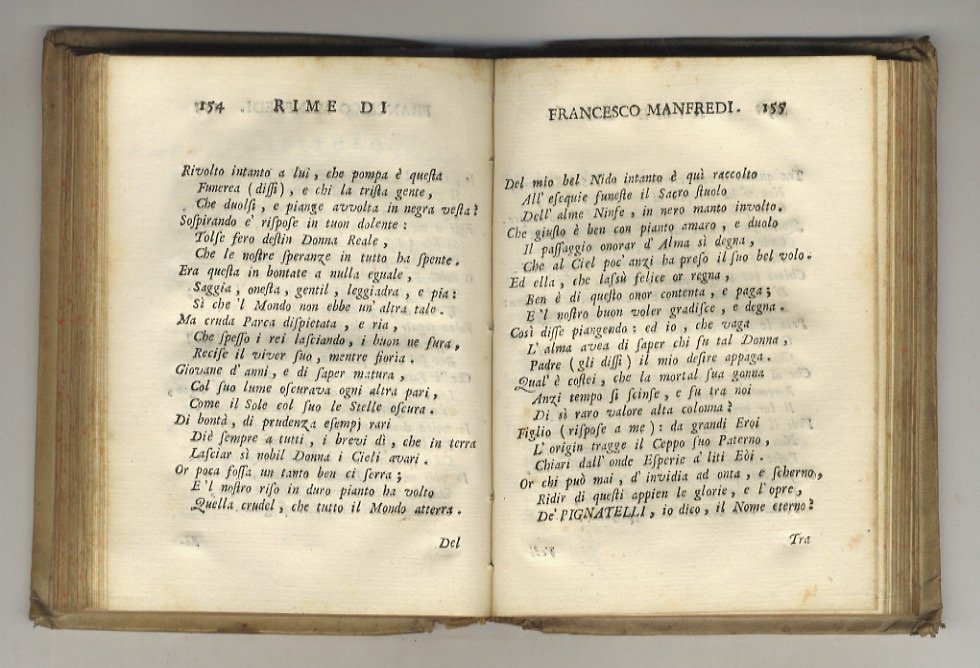 154 RIME DI
Rivolto intanto a lui, che pompa è queſta
Funerea (diſſi), e chi la triſta gente,
Che duolſi, e piange avvolta in negra veſta?
Soſpirando e' riſpoſe in tuon dolente:
Tolſe fero deſtin Donna Reale,
Che le noſtre ſperanze in tutto ha ſpente.
Era queſta in bontate a nulla eguale,
Saggia, oneſta, gentil, leggiadra, e pia:
Sì che 'l Mondo non ebbe un' altra tale.
Ma cruda Parca diſpietata, e ria,
Che ſpeſſo i rei laſciando, i buon ne fura,
Reciſe il viver ſuo, mentre fioria.
Giovane d' anni, e di ſaper matura,
Col ſuo lume oſcurava ogni altra pari,
Come il Sole col ſuo le Stelle oſcura.
Di bontà, di prudenza eſempj rari
Diè ſempre a tutti, i brevi dì, che in terra
Laſciar sì nobil Donna i Cieli avari.
Or poca foſſa un tanto ben ci ſerra;
E 'l noſtro riſo in duro pianto ha volto
Quella crudel, che tutto il Mondo atterra.
Del
FRANCESCO MANFREDI. 155
Del mio bel Nido intanto è quì raccolto
All' eſequie funeſte il Sacro ſtuolo
Dell' alme Ninfe, in nero manto involto.
Che giuſto è ben con pianto amaro, e duolo
Il paſſaggio onorar d' Alma sì degna,
Che al Ciel poc' anzi ha preſo il ſuo bel volo.
Ed ella, che laſsù felice or regna,
Ben è di queſto onor contenta, e paga;
E 'l noſtro buon voler gradiſce, e degna.
Così diſſe piangendo: ed io, che vaga
L' alma avea di ſaper chi fu tal Donna,
Padre (gli diſſi) il mio deſire appaga.
Qual' è coſtei, che la mortal ſua gonna
Anzi tempo ſi ſcinſe, e fu tra noi
Di sì raro valore alta colonna?
Figlio (riſpoſe a me): da grandi Eroi
L' origin tragge il Ceppo ſuo Paterno,
Chiari dall' onde Eſperie a' liti Eòi.
Or chi può mai, d' invidia ad onta, e ſcherno,
Ridir di queſti appien le glorie, e l' opre,
De' PIGNATELLI, io dico, il Nome eterno?
Tra